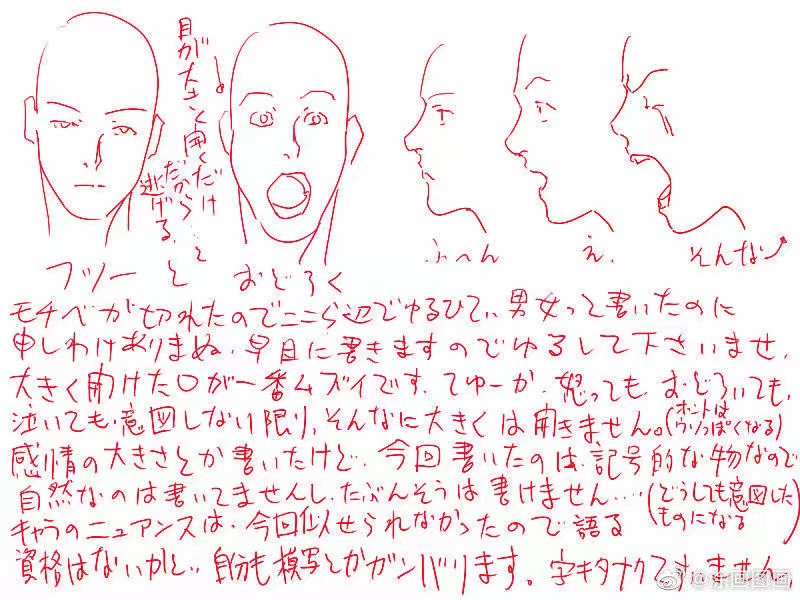 目が大きく開くだけ
だから…と
逃げる。
フツーと
おどろく
ふーん
え、
そんなー
モチベが切れたのでここら辺でゆるひて、男女って書いたのに
申しわけありまぬ、早目に書きますのでゆるして下さいませ、
大きく開けた口が一番ムズイです、てゆーか、怒っても、おどろいても、
泣いても、意図しない限り、そんなに大きくは開きません。(ホントは
ウソっぽくなる)
感情の大きさとか書いたけど、今回書いたのは、記号的な物なので
自然なのは書いてませんし、たぶんそうは書けません…(どうしても意図した
ものになる
キャラのニュアンスは、今回似せられなかったので語る
資格はないかと、自分も模写とかガンバります。字キタナクてすいません、
@涂画图画